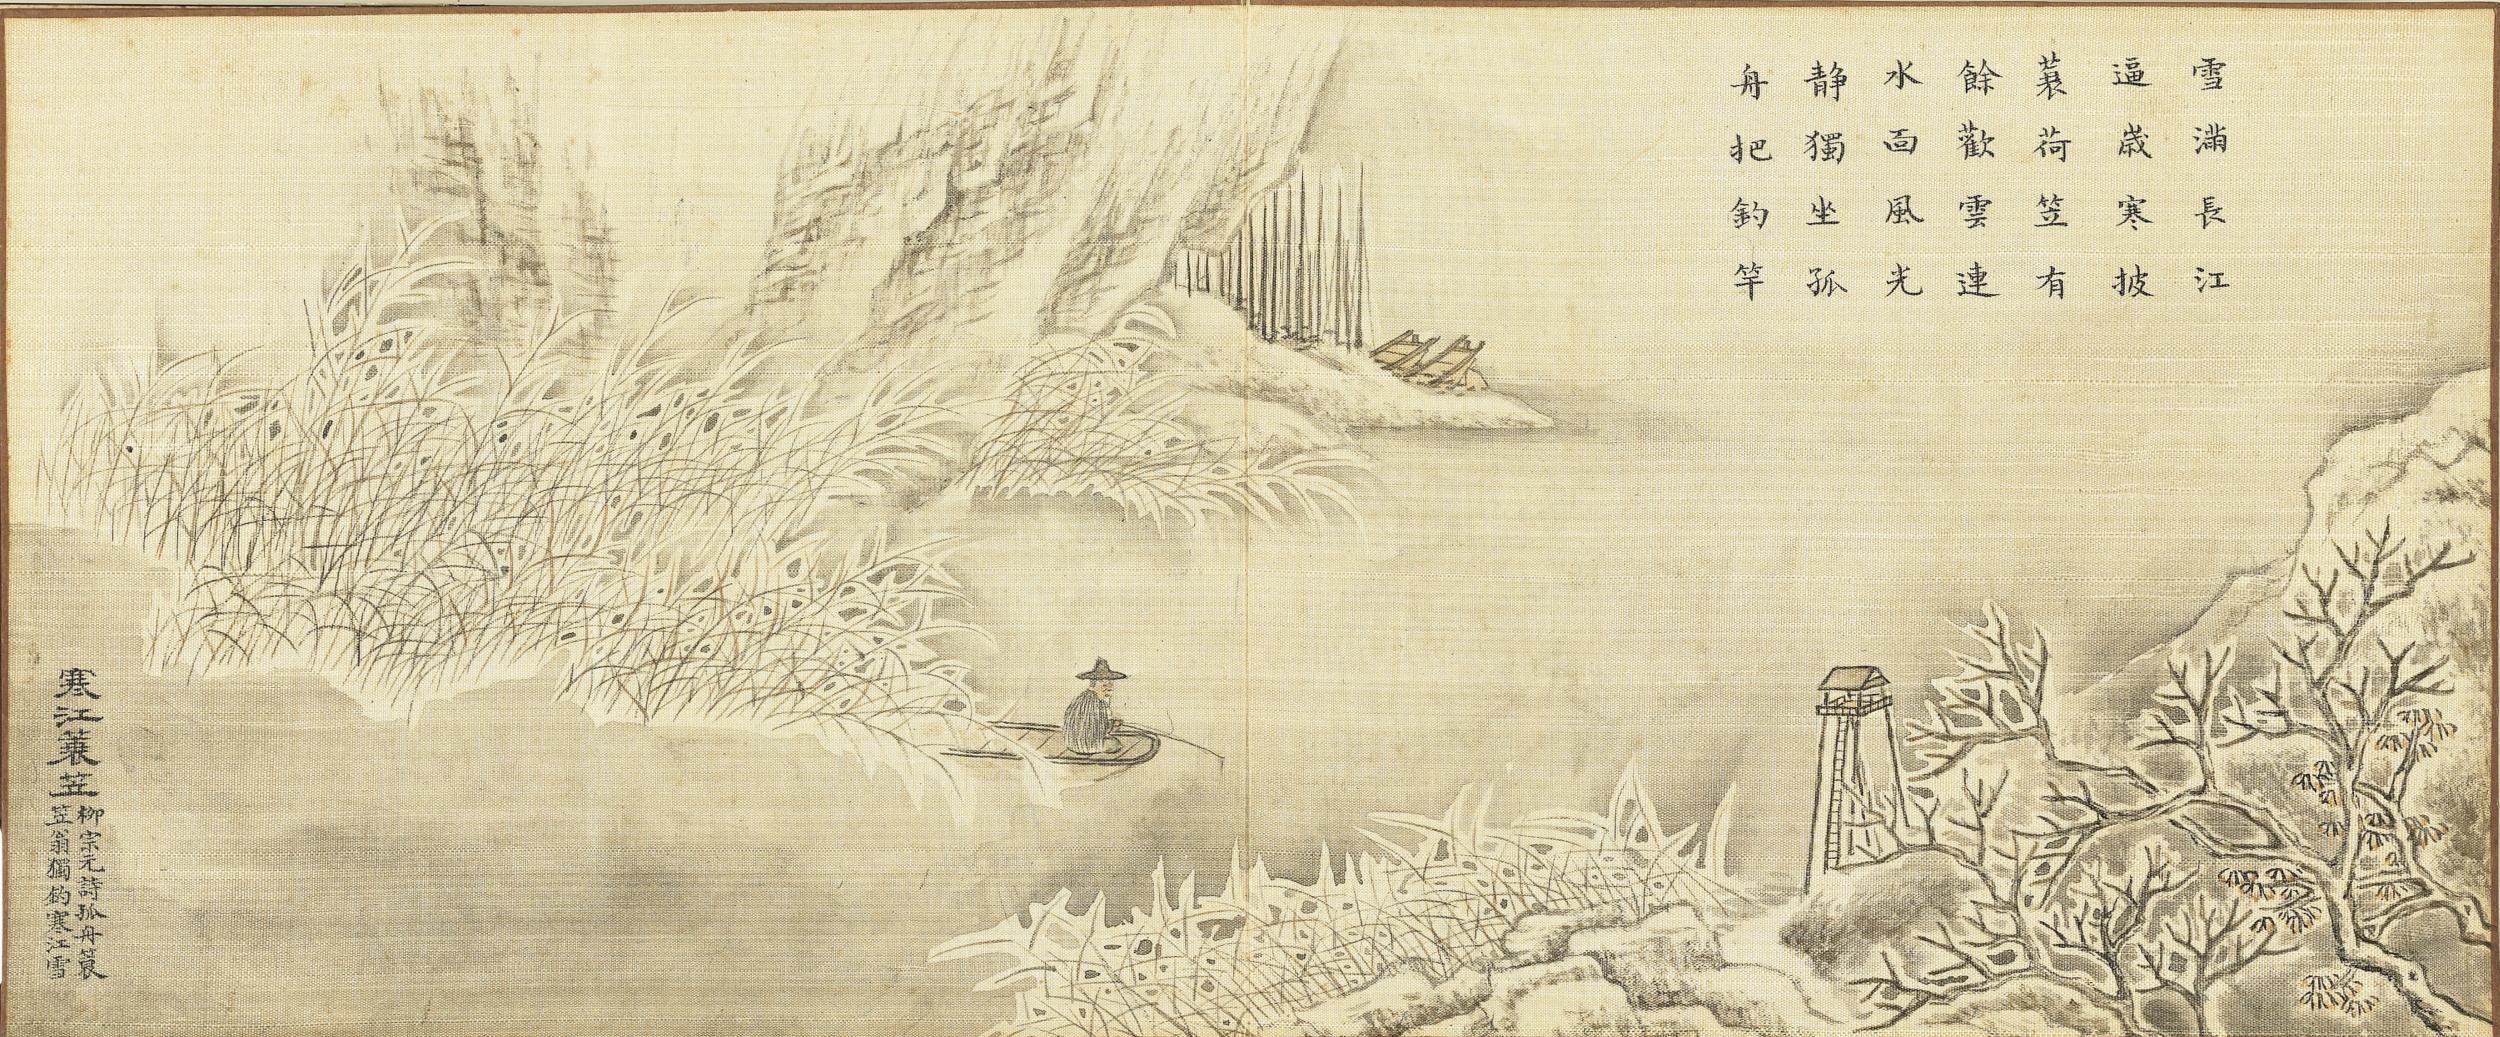 雪滿長江
逼歲寒披
蓑荷笠有
餘歡雲連
水面風光
静獨坐孤
舟把釣竿
寒江蓑笠
柳宗元詩孤舟簑
笠翁獨釣寒江雪